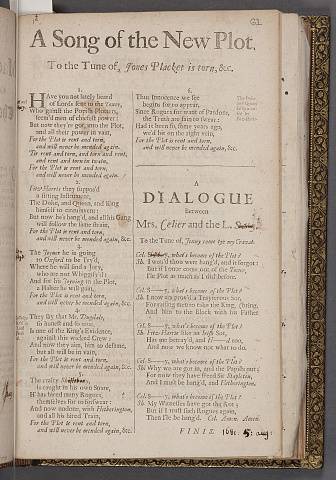 61
A Song of the New Plot.
To the Tune of, Joans Placket is torn, &c.
1.
HAve you not lately heard
of Lords sent to the Tower,
Who 'gainst the Popish Plot
seem'd men of chiefest power:
But now they're got into the Plot,
and all their power in vain,
For the Plot is rent and torn,
and will never be mended again.
'Tis rent and torn, and torn and rent,
and rent and torn in twain,
For the Plot is rent and torn,
and will never be mended again.
2.
Fitz-Harris they suppos'd
a string Instrument,
The Duke, and Queen, and King
himself to
But now he's hang'd, and all his Gang
will follow the same strain,
For the Plot is rent and torn,
and will never be mended again, &c.
3.
The Joyner he is going
to Oxford to be Try'd,
Where he will find a Jury,
who are not Whigify'd:
And for his in the Plot,
a Halter he will gain,
For the Plot is rent and torn,
and will never be mended again, &c.
4.
They By that Mr. Dugdale,
so and so true,
Is one of the King's Evidence,
against this wicked Crew:
And now they say, him to defame,
but all will be in vain,
For the Plot is rent and torn,
and will never be mended again, &c.
5.
The crafty
is caught in his own Snare,
H'has hired many Rogues,
themselves for to forswear:
And now undone, with Hetherington,
and all his hired Train,
For the Plot is rent and torn,
and will never be mended again, &c.
6.
Thus Innocence we see
begins for to appear,
Since Rogues for want of Pardons,
the Truth are fain to swear:
Had it been so, some years ago,
we'd hit on the right vein,
For the Plot is rent and torn,
and will never be mended again, &c.
A
DIALOGUE
between
Mrs. Celier and the L. S
To the Tune of, Jenny come tye my Cravat.
Cel. S——y, what's become of the Plot?
Sh. I wou'd thou wert hang'd, and it forgot:
But if I once come out of the Tower,
I'le Plot as much as I did before.
Cel. S——y, what's become of the Plot?
Sh. I now am prov'd a Trayterous Sot,
For raising stirs to take the King,
And him to the Block with his Father bring.
Cel. S——y, what's become of the Plot?
Sh. Fitz-Harris like an Sot,
Has me betray'd, and H——d too,
And now we know not what to do.
Cel. S——y, what's become of the Plot?
Sh. Why we are got in, and the Papists out;
For now they have freed Sir
And I must be hang'd, and Hetherington.
Cel. S——y, what's become of the Plot?
Sh. My Waterfies have got the Rot;
But if I trust such Rogues again,
Then I'le be hang'd. Cel. Amen. Amen.
FINIS. 1681. 5: aug: